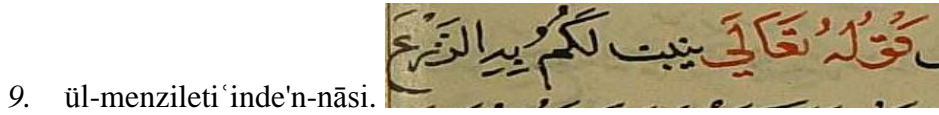 9. ül-menzileti ʿinde'n-nāsi. قَوْلُهُ تَعَالَي ينبت لَكُمْ بِهِ الزَّرْعَ